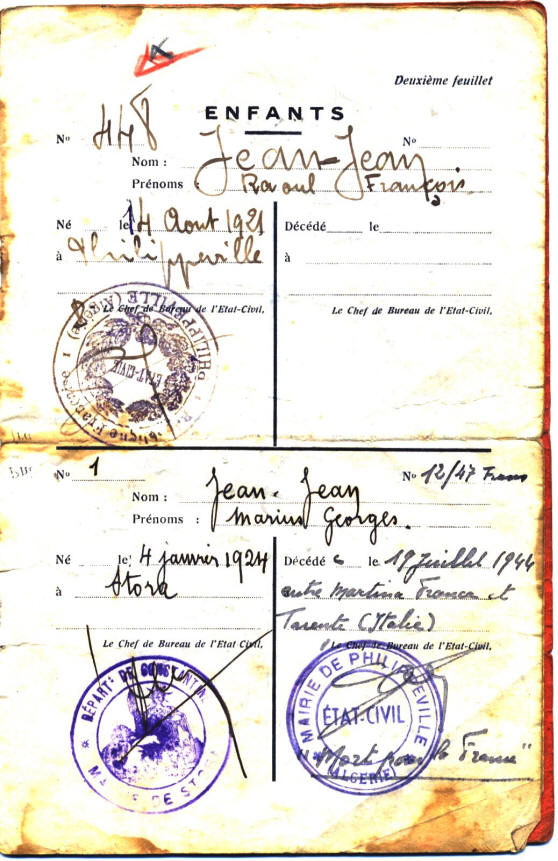 Deuxième feuillet
ENFANTS
No 448 No
Nom : Jean-Jean
Prénoms : Raoul François
Né le 14 Aout 1921
à Philippeville
Décédé le
à
Le Chef de Bureau de l'Etat-Civil,
PHILIPPEVILLE (Algérie)
ETAT-CIVIL
Le Chef de Bureau de l'Etat-Civil,
No 1 No 12/47 Trans
Nom : Jean-Jean
Prénoms : Marius Georges.
Né le 4 janvier 1924
à Stora
Le Chef de Bureau de l'Etat Civil,
DÉPARTT DE CONSTANTINE
MAIRIE DE STORA
Décédé le 19 Juillet 1944
entre Martina Franca et
Tarente (Italie)
Le Chef de Bureau de l'Etat-Civil,
MAIRIE DE PHILIPPEVILLE
ÉTAT-CIVIL
(ALGÉRIE)
"Mort pour la France"